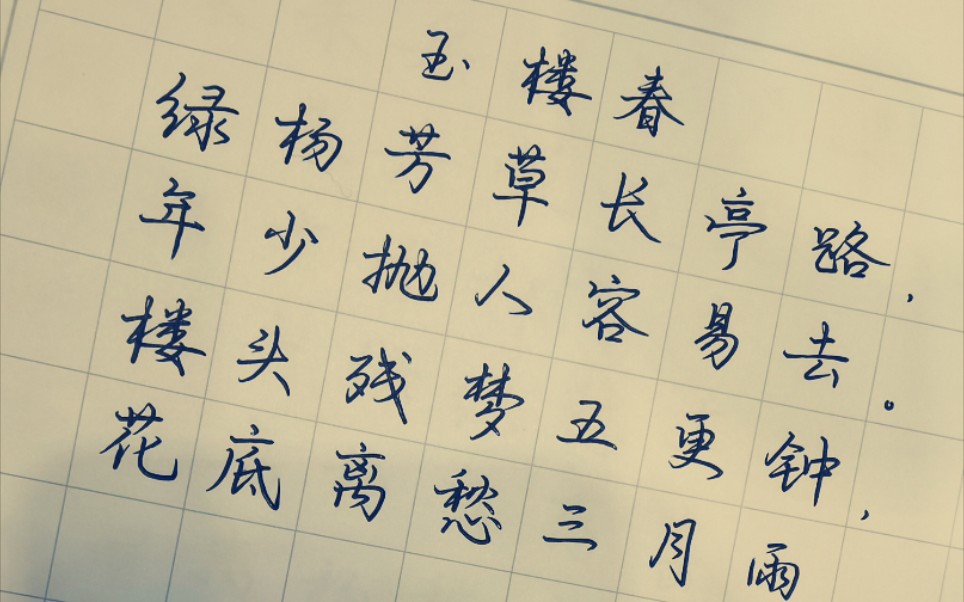 玉楼春
绿杨芳草长亭路，
年少抛人容易去。
楼头残梦五更钟，
花底离愁三月雨